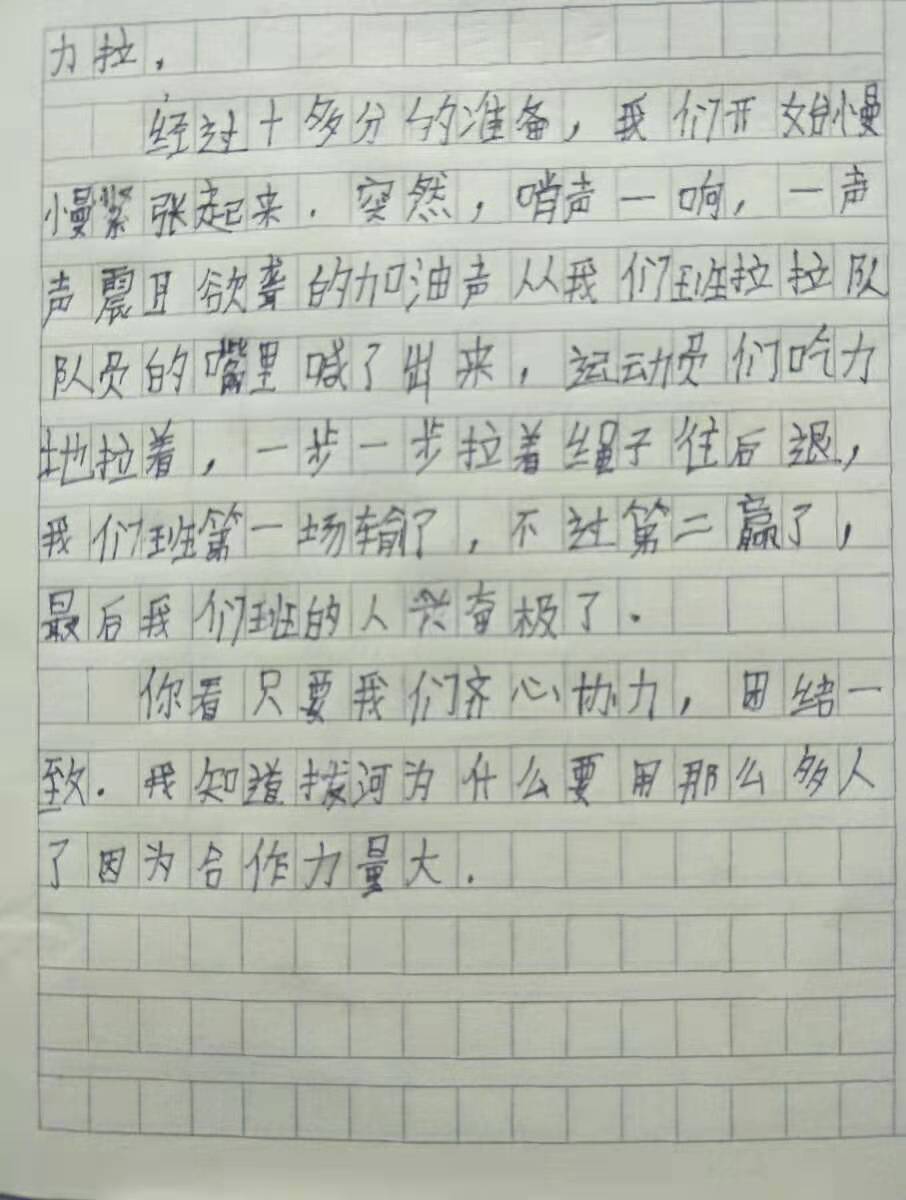 力拉，
经过十多分的准备，我们开始慢
慢紧张起来．突然，哨声一响，一声
声震耳欲聋的加油声从我们班拉拉队
队员的嘴里喊了出来，运动员们吃力
地拉着，一步一步拉着绳子往后退，
我们班第一场输了，不过第二赢了，
最后我们班的人兴奋极了．
你看只要我们齐心协力，团结一
致．我知道拔河为什么要用那么多人
了因为合作力量大．